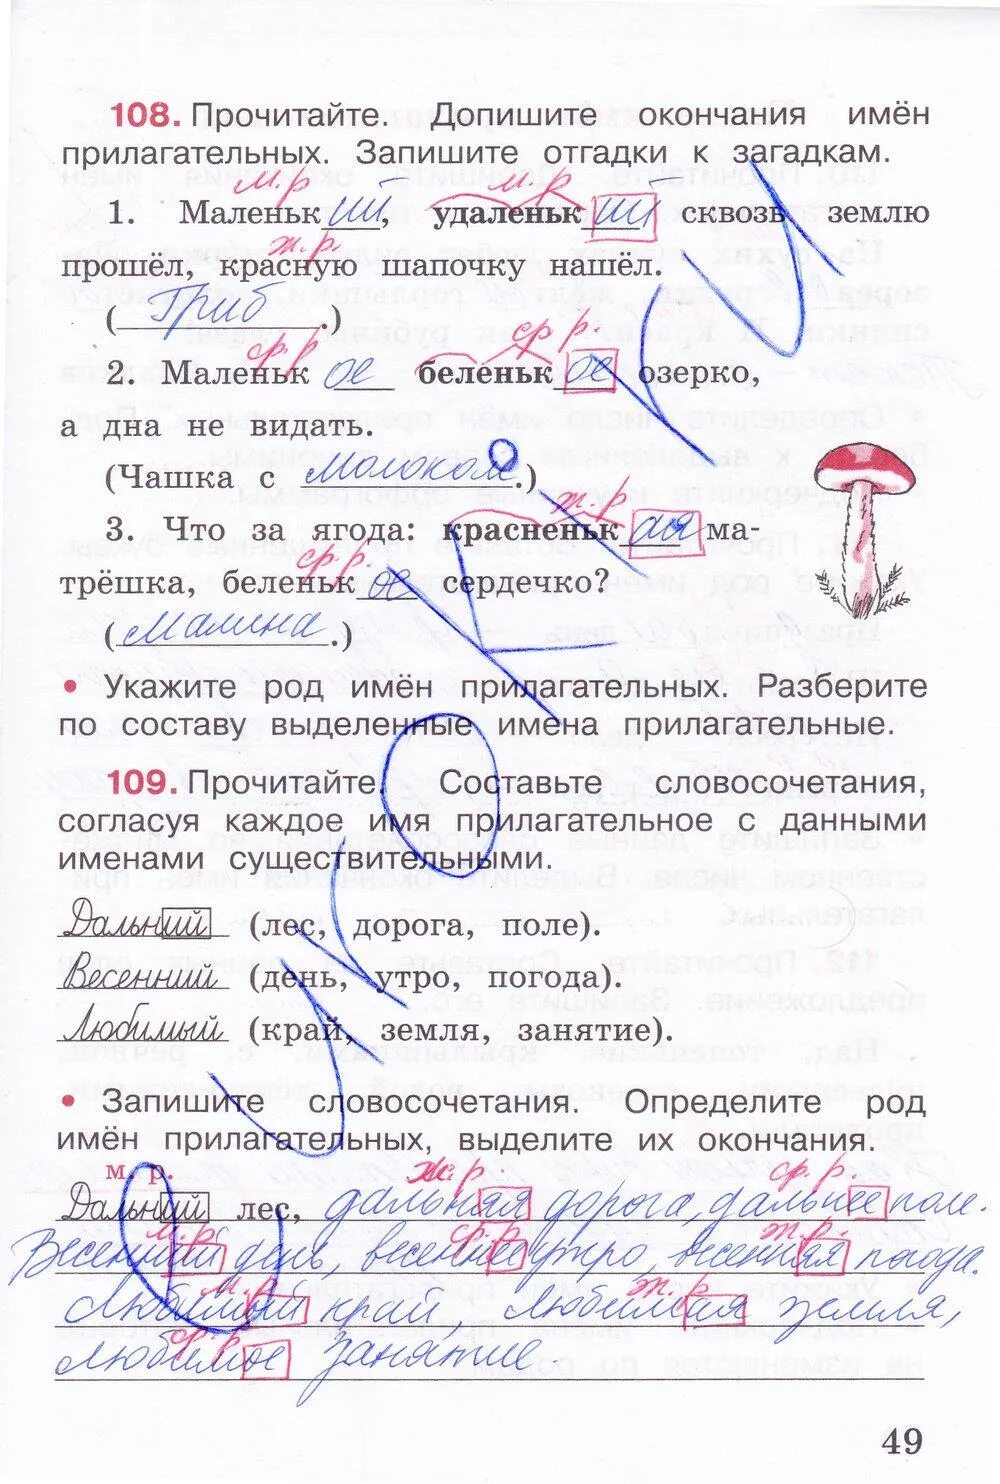 108. Прочитайте. Допишите окончания имён
прилагательных. Запишите отгадки к загадкам.
м.р м.р
1. Маленький, удаленький сквозь землю
ж.р.
прошёл, красную шапочку нашёл.
(Гриб.)
ср.р ср.р.
2. Маленькое беленькое озерко,
а дна не видать.
(Чашка с молоком.)
ж.р
3. Что за ягода: красненькая ма-
ср.р.
трёшка, беленькое сердечко?
(Малина.)
• Укажите род имён прилагательных. Разберите
по составу выделенные имена прилагательные.
109. Прочитайте. Составьте словосочетания,
согласуя каждое имя прилагательное с данными
именами существительными.
Дальний (лес, дорога, поле).
Весенний (день, утро, погода).
Любимый (край, земля, занятие).
• Запишите словосочетания. Определите род
имён прилагательных, выделите их окончания.
м. р. ж.р. ср.р.
Дальний лес, дальняя дорога, дальнее поле.
м.р ср.р ж.р.
Весенний день, весеннее утро, весенняя погода.
м.р ж.р
Любимый край, любимая земля,
ср.р
любимое занятие
49
СУРОККИ